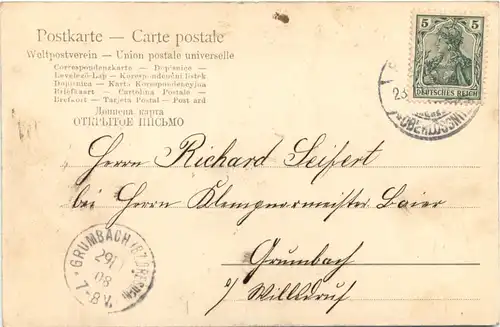 Postkarte — Carte postale
Weltpostverein — Union postale universelle
Correspondenzkarte — Dopisnice —
Levelező-Lap — Korespondenční listek
Dopisnica — Karta Korespondencyjna
Briefkaart — Cartolina Postale —
Brefkort — Tarjeta Postal — Post ard
Дописна карта
ОТКРЫТОЕ ПИСЬМО
5 5
DEUTSCHES REICH
23
OBERLÖSSNITZ
Herrn Richard Seifert
bei Herrn Klempnermeister Baier
Grumbach
b/ Willsdruf
GRUMBACH (BZ. DRESDEN)
29.1
08
7-8 V.